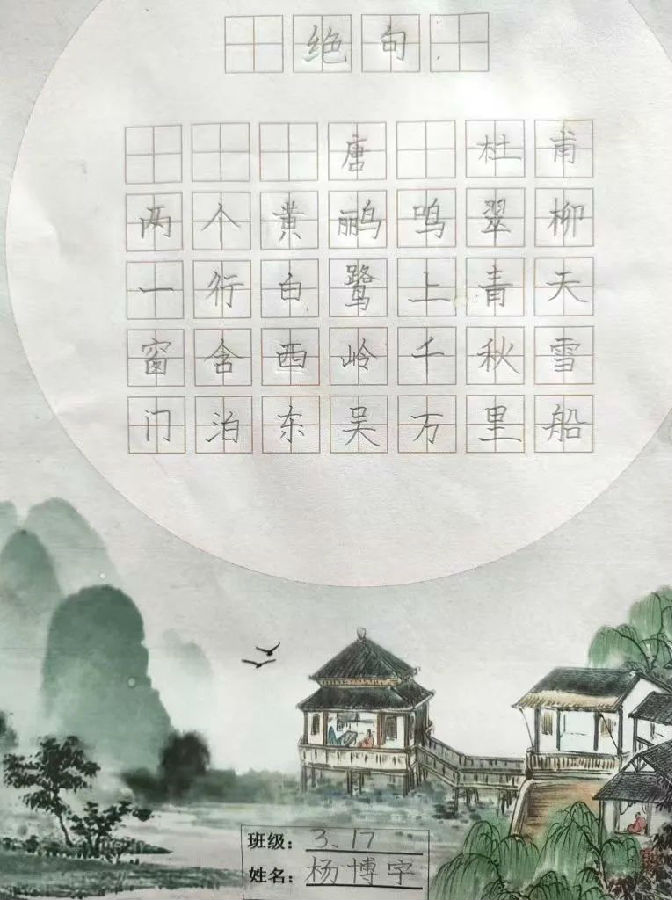 绝句
唐 杜甫
两个黄鹂鸣翠柳
一行白鹭上青天
窗含西岭千秋雪
门泊东吴万里船
班级：3.17
姓名：杨博宇